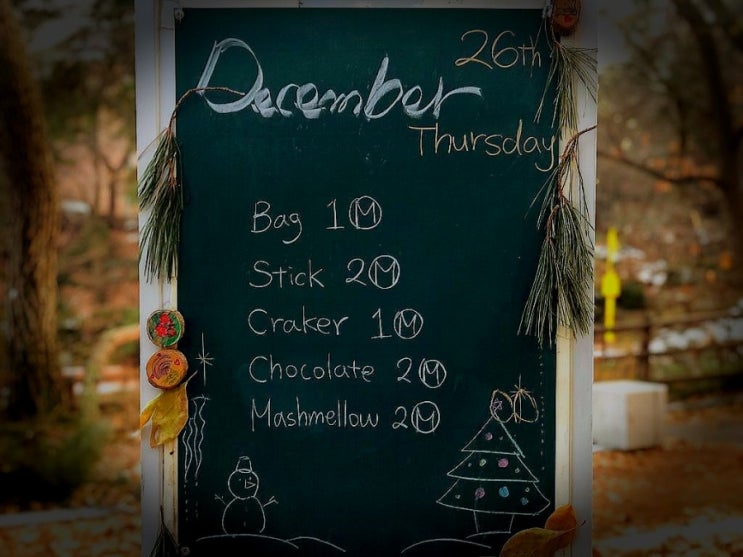 26th
December
Thursday
Bag 1Ⓜ
Stick 2Ⓜ
Craker 1Ⓜ
Chocolate 2Ⓜ
Mashmellow 2Ⓜ